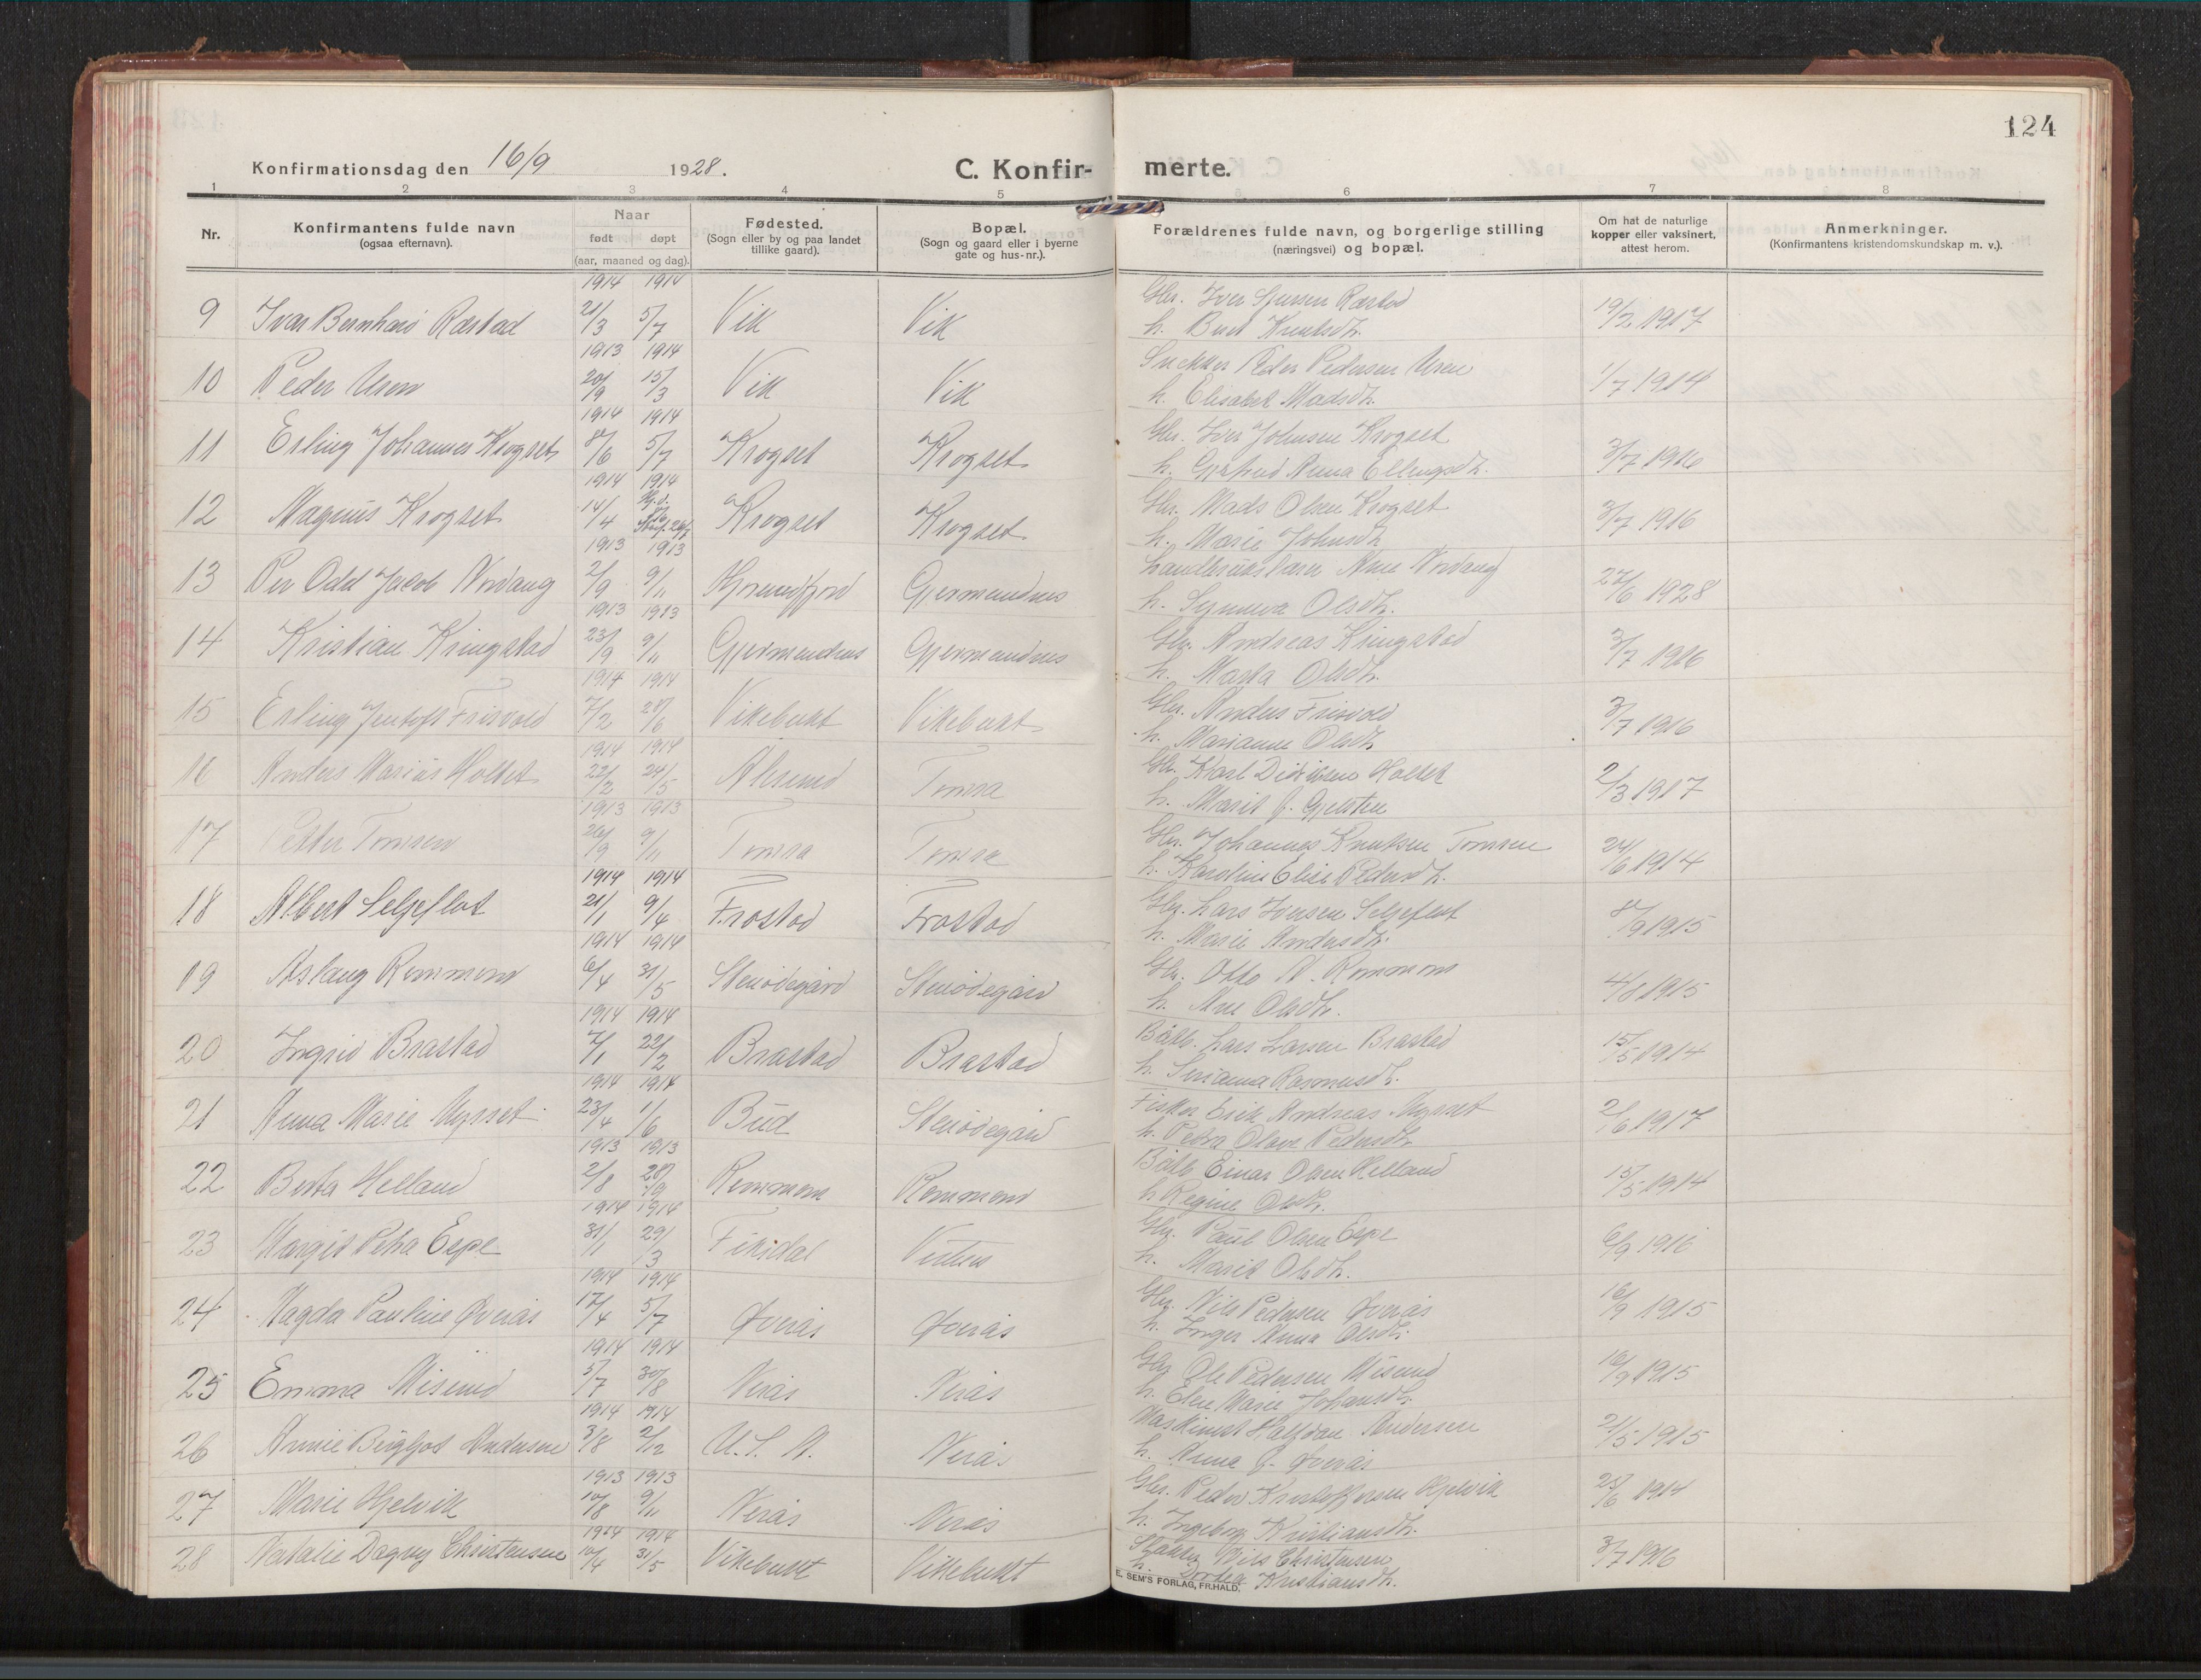 124
Konfirmationsdag den 16/9 1928.
C. Konfir- merte.
1 2 3 4 5 6 7 8
Nr.
Konfirmantens fulde navn
(ogsaa efternavn).
Naar
født døpt
(aar, maaned og dag).
Fødested.
(Sogn eller by og paa landet
tillike gaard).
Bopæl.
(Sogn og gaard eller i byerne
gate og hus-nr.).
Forældrenes fulde navn, og borgerlige stilling
(næringsvei) og bopæl.
Om hat de naturlige
kopper eller vaksinert,
attest herom.
Anmerkninger.
(Konfirmantens kristendomskundskap m. v.).
1914 1914
9 Ivar Bernhard Rastad 21/3 5/7 Vik Vik Gbr. Iver Rastad 19/2 1917
h. Knutsdt.
1913 1914
10 Peder Uren 20/9 15/3 Vik Vik Snekker Peder Pedersen Uren 1/7 1914
h. Elisabet Madsdt.
1914 1914
11 Erling Johannes Krogset 8/6 5/7 Krogset Krogset Gbr. Iver Johnsen Krogset 3/7 1916
h. Anna Ellingsdt.
1914 1914
12 Magnus Krogset 14/4 Krogset Krogset Gbr. Mads Olsen Krogset 3/7 1916
h. Marie Johnsdt.
1913 1913
13 Per Odd Jacob Nordang 2/9 9/11 Hjørundfjord Gjermundnes Nordang 27/6 1928
h. Synnøva Olsdt.
1913 1913
14 Kristian Kringstad 23/9 9/11 Gjermundnes Gjermundnes Gbr. Andreas Kringstad 3/7 1916
h. Marta Olsdt.
1914 1914
15 Erling Jentoft Frisvold 7/2 28/6 Vikebukt Vikebukt Gbr. Anders Frisvold 3/7 1916
h. Marianne Olsdt.
1914 1914
16 Anders Marius Holtet 22/2 24/5 Ålesund Tomra Gbr. Karl Didriksen Holtet 2/3 1917
h. Marit J. Gjelsten
1913 1913
17 Petter Tomren 26/9 9/11 Tomra Tomra Gbr. Johannes Knutsen Tomren 24/6 1914
h. Karoline Elise Pedersdt.
1914 1914
18 Albert Seljeflot 21/1 9/4 Frostad Frostad Gbr. Lars Iversen Seljeflot 8/9 1915
h. Marie Andersdt.
1914 1914
19 Aslaug Remmem 6/4 31/5 Stenødegård Stenødegård Gbr. Otto A. Remmem 4/8 1915
h. Ane Olsdt.
1914 1914
20 Ingrid Brastad 7/1 22/2 Brastad Brastad Båtb. Lars Larsen Brastad 15/5 1914
h. Serianna Rasmusdt.
1914 1914
21 Anna Marie Myrset 23/4 1/6 Bud Stenødegård Fisker Erik Andreas Myrset 2/6 1917
h. Petra Olave Pedersdt.
1913 1913
22 Berta Helland 2/8 28/9 Remmem Remmem Båtb. Einar Olsen Helland 15/5 1914
h Regine Olsdt.
1914 1914
23 Margit Petra Espe 31/1 29/3 Fiksdal Vestnes Gbr. Paul Olsen Espe 6/9 1916
h. Marit Olsdt.
1914 1914
24 Magda Pauline Øverås 17/4 5/7 Øverås Øverås Gbr. Nils Pedersen Øverås 16/9 1915
h. Inger Anna Olsdt.
1914 1914
25 Emma Misund 5/7 30/8 Nerås Nerås Gbr. Ole Pedersen Misund 16/9 1915
h. Elen Marie Johansdt.
1914 1914
26 Annie Bergljot Andersen 3/8 2/12 U.S.A. Nerås Maskinist Halfdan Andersen 21/5 1915
h. Anna J. Øverås
1913 1913
27 Marie Hjelvik 10/8 9/11 Nerås Nerås Gbr. Peder Kristoffersen Hjelvik 25/6 1914
h. Ingeborg Kristiansdt.
1914 1914
28 Natalie Dagny Christensen 10/4 31/5 Vikebukt Vikebukt Nils Christensen 3/7 1916
h. Dortea Kristiansdt.
E. SEM'S FORLAG, FR.HALD.